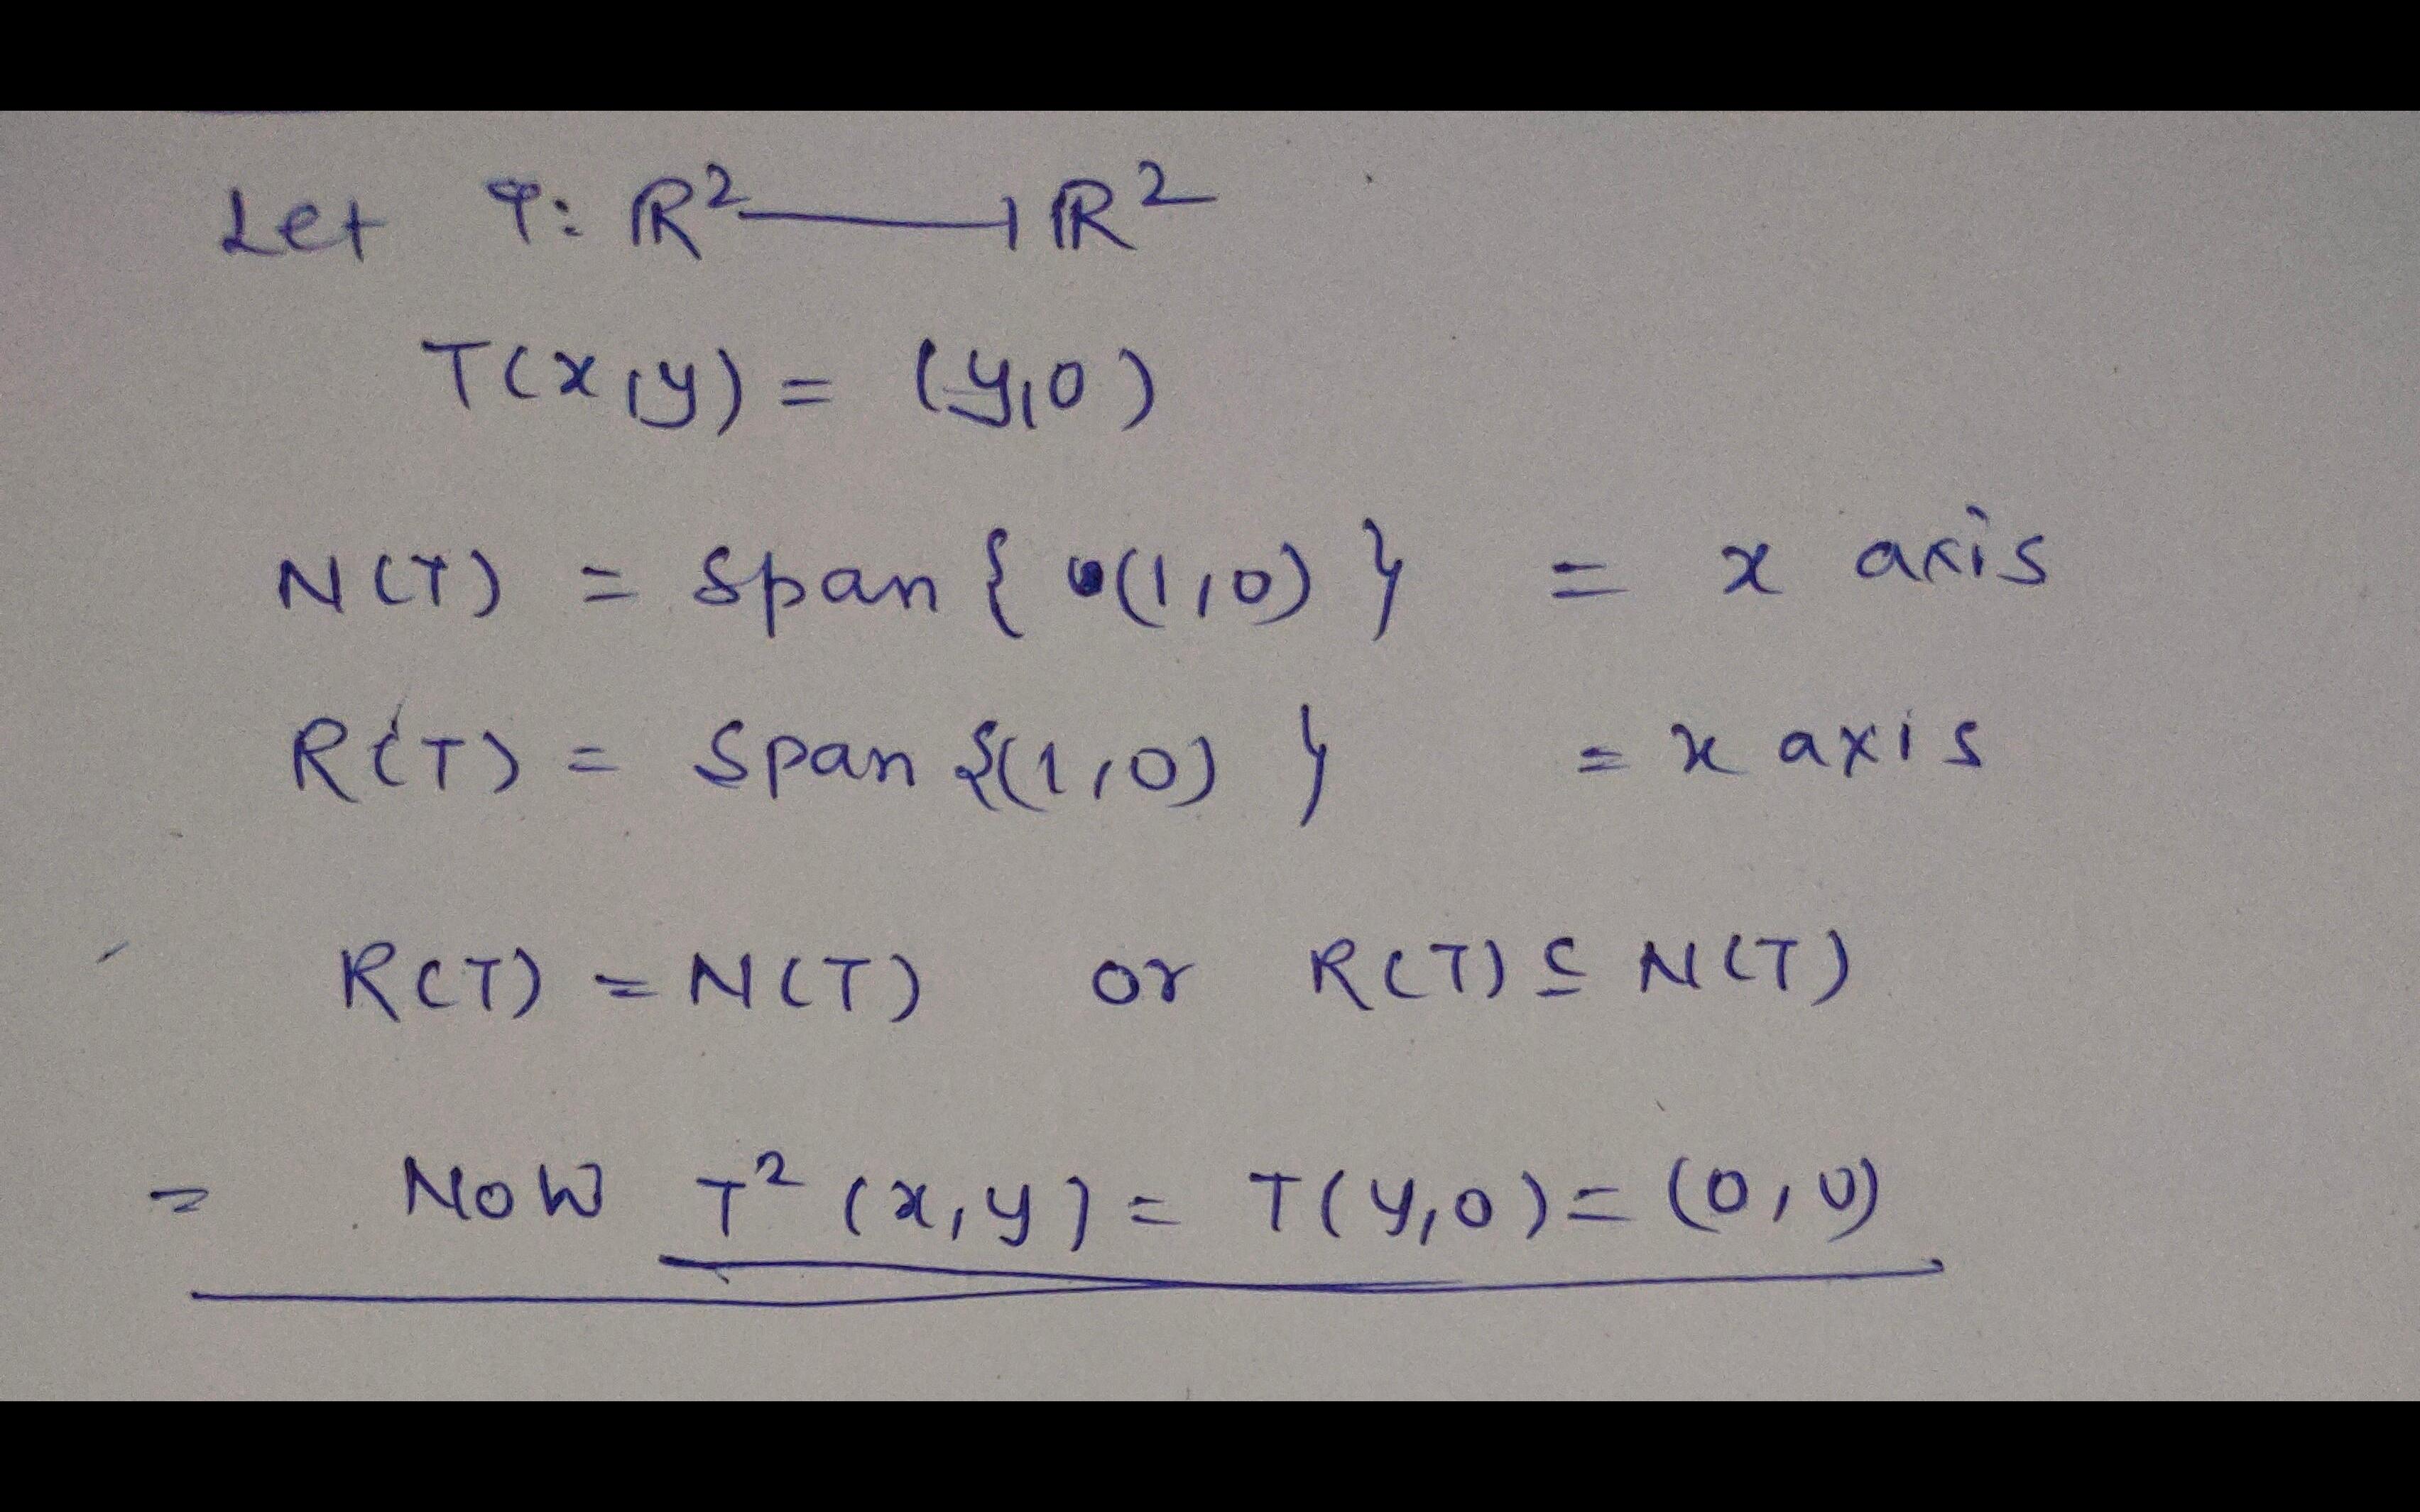 Let T: ℝ² → ℝ²
T(x,y) = (y,0)
N(T) = Span { (1,0) } = x axis
R(T) = Span {(1,0) } = x axis
R(T) = N(T) or R(T) ⊆ N(T)
= Now T² (x,y) = T(y,0) = (0,0)